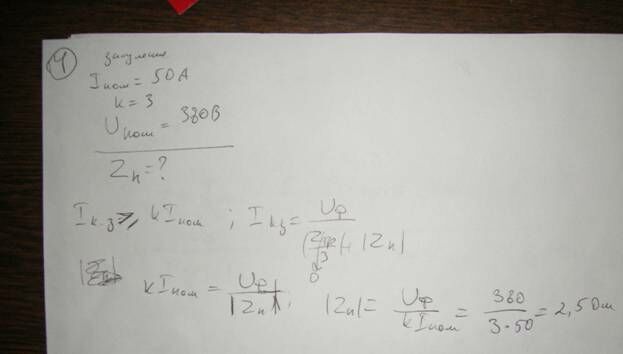 4
зануление
Iном = 50А
k = 3
Uном = 380В
Zп = ?
Iк.з ≥ kIном ; Iкз = Uф / (|Zтр/3| + |Zп|)
0
kIном = Uф / |Zп| ; |Zп| = Uф / kIном = 380 / 3·50 = 2,5 Ом